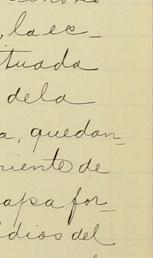 , la ec-
tuada
dela
a, quedan-
riente de
apa for-
dios del